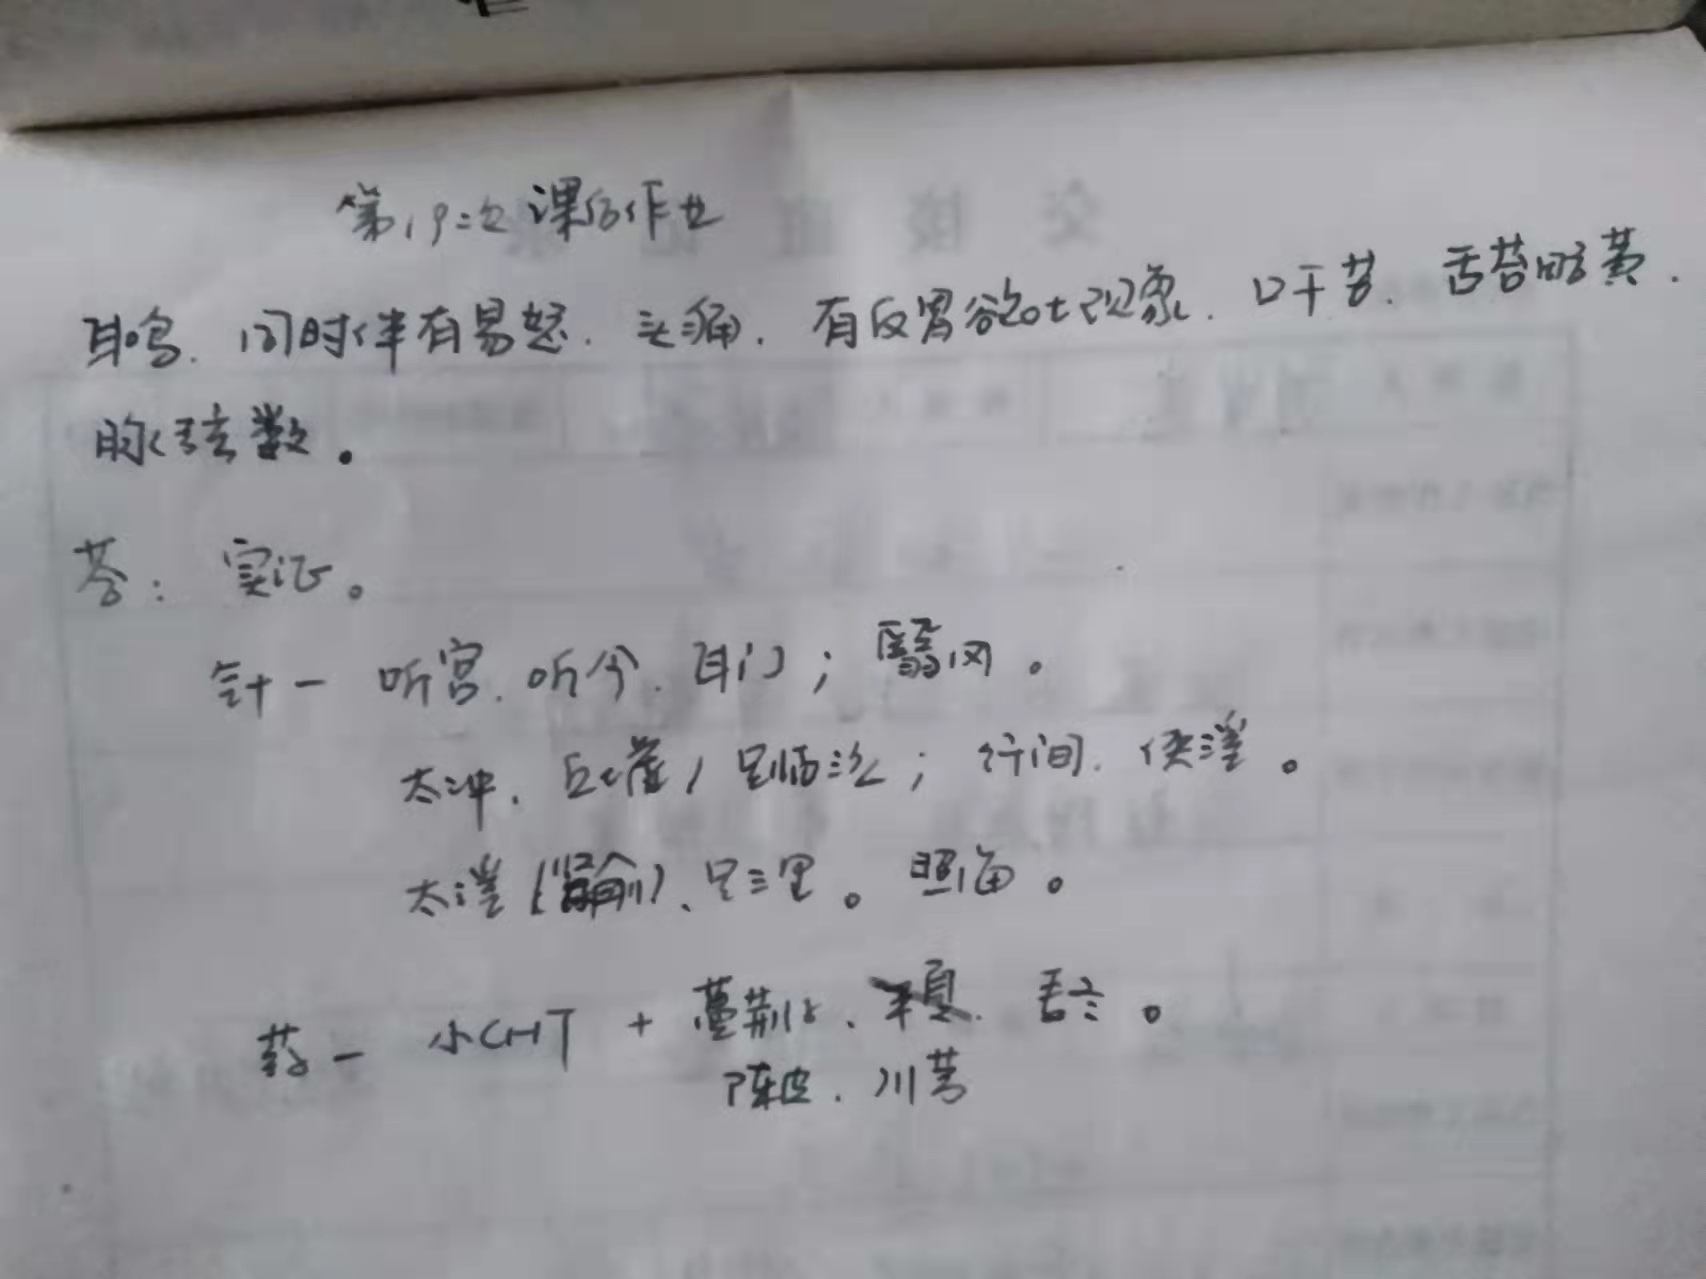 第19次课后作业
耳鸣. 同时伴有易怒. 头痛. 有反胃欲吐现象. 口干苦. 舌苔略黄.
脉弦数。
答: 实证。
针一 听宫. 听会. 耳门; 翳风。
太冲. 丘墟, 足临泣; 行间. 侠溪。
太溪(肾俞)、足三里。照海。
药一 小CHT + 蔓荆子、
陈皮. 川芎